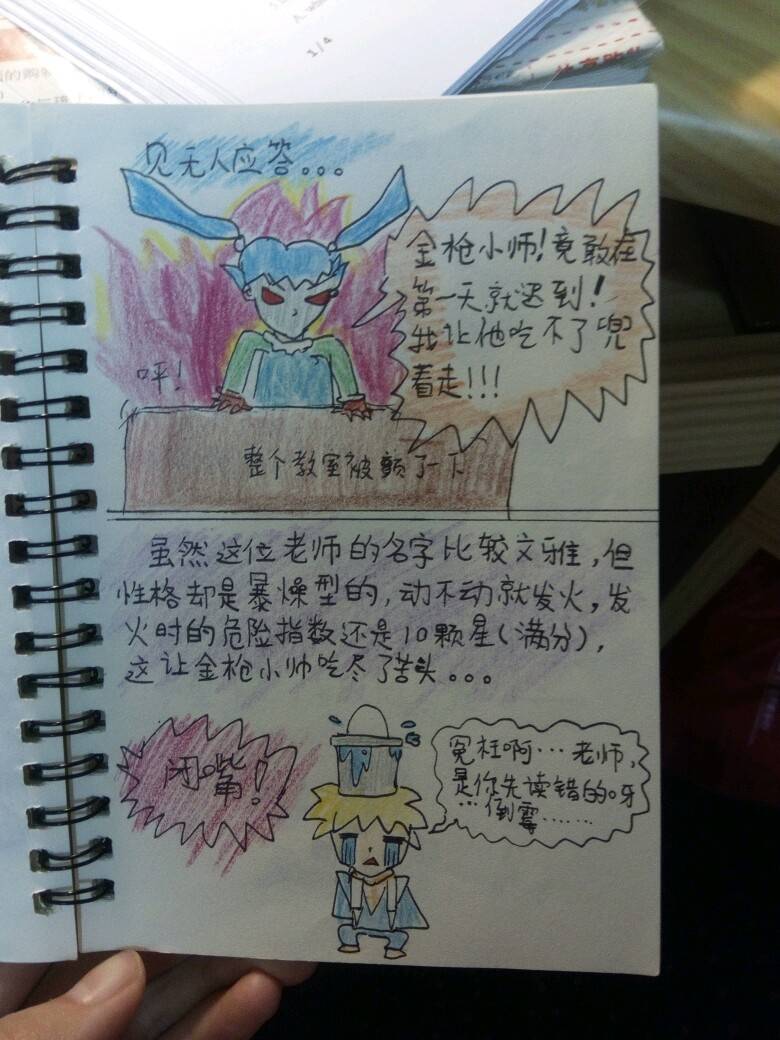 1/4
见无人应答。。。
金枪小师!竟敢在
第一天就迟到!
我让他吃不了兜
着走!!!
呯!
整个教室被颤了一下
虽然这位老师的名字比较文雅,但
性格却是暴燥型的,动不动就发火,发
火时的危险指数还是10颗星(满分),
这让金枪小帅吃尽了苦头。。。
闭嘴!
冤枉啊……老师,
是你先读错的呀
…倒霉……